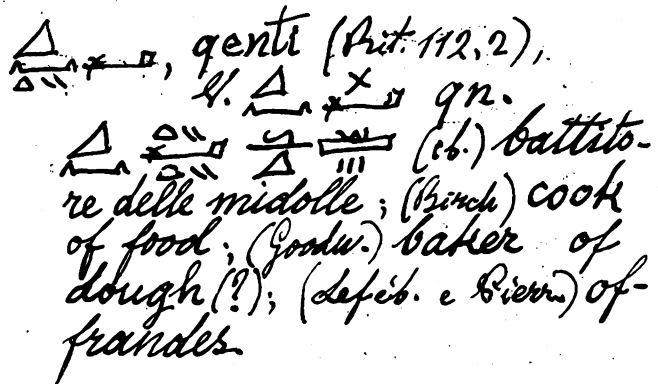 , qenti (Rit. 112, 2),
V. qn.
(ib.) battito-
re delle midolle; (Birch) cook
of food; (Goodw.) baker of
dough (?); (Lefèb. e Pierr.) of-
frandes.